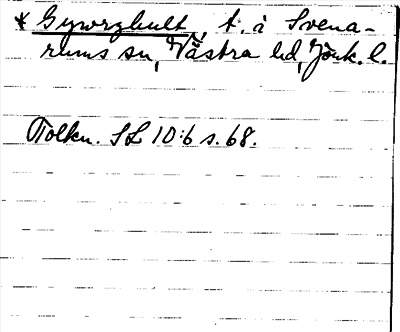 * Gyworghult, t. à Svena-
rums sn, Västra hd, Jönk. l.
Tolkn. SL 10:6 s. 68.